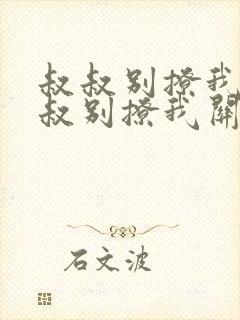 叔叔别撩我
叔别撩我开
石文波